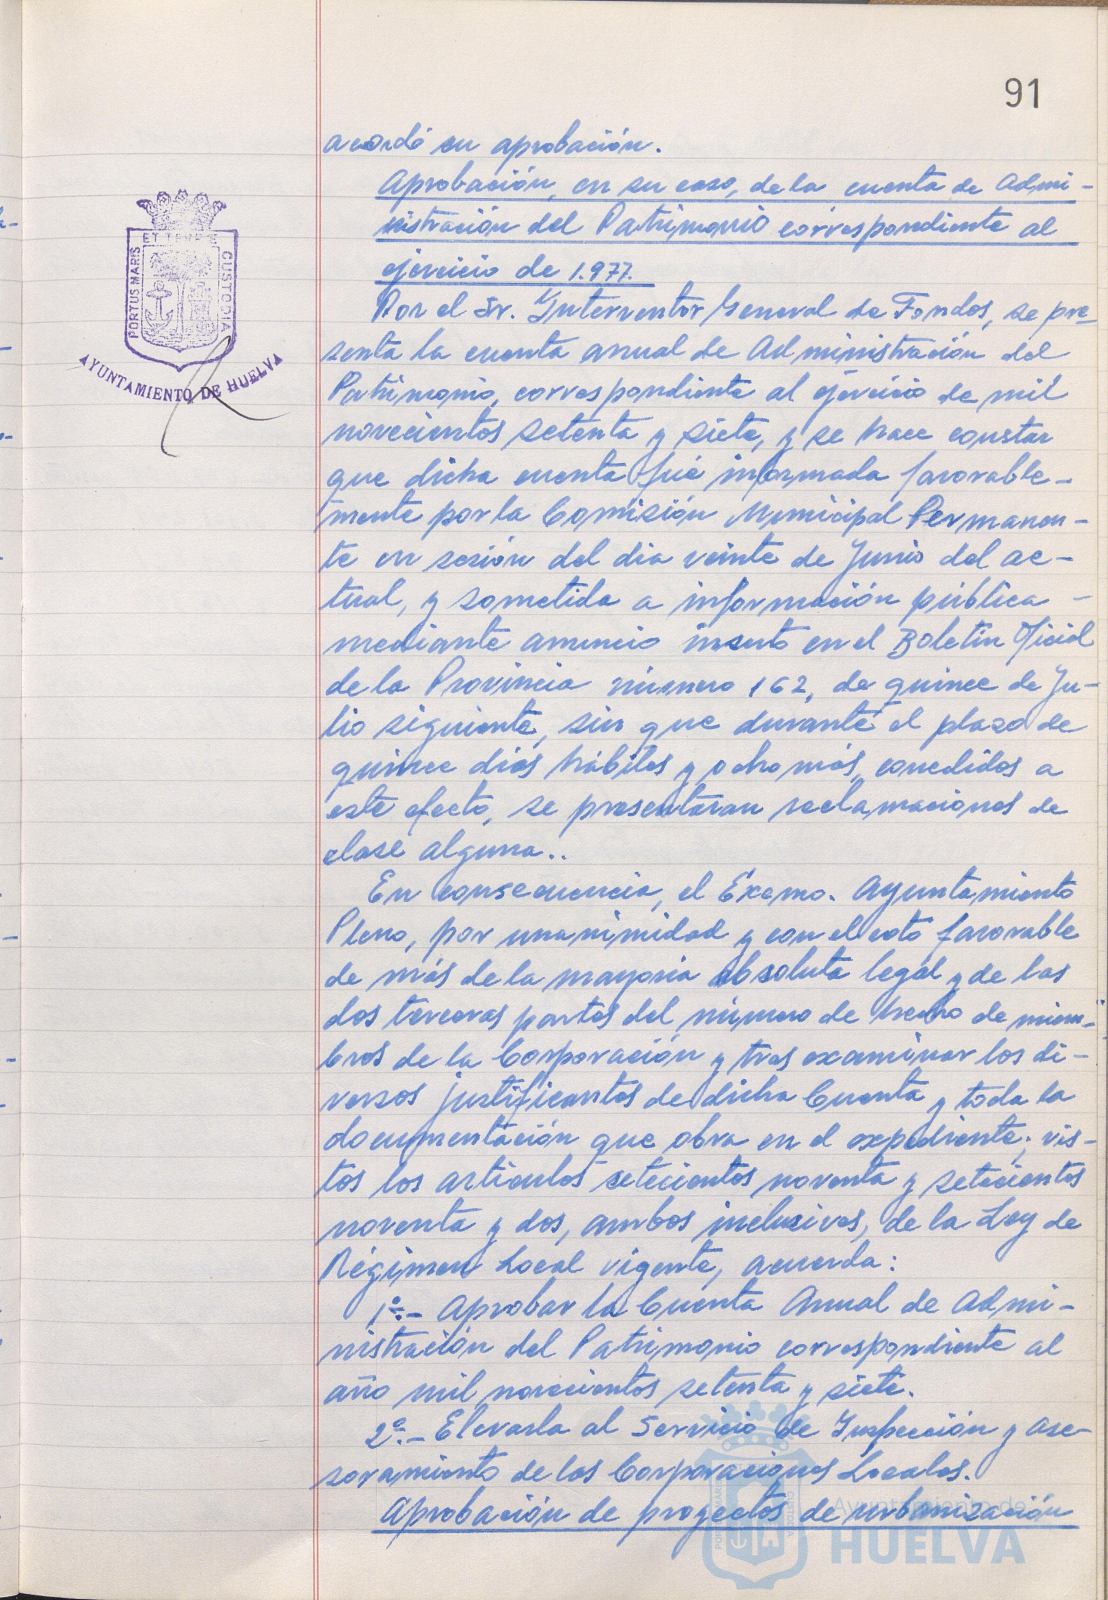 91
acordó su aprobación.
Aprobación, en su caso, de la cuenta de Admi-
nistración del Patrimonio correspondiente al
ejercicio de 1.977.
Por el Sr. Interventor General de Fondos, se pre-
senta la cuenta anual de Administración del
Patrimonio, correspondiente al ejercicio de mil
novecientos setenta y siete, y se hace constar
que dicha cuenta fué informada favorable-
mente por la Comisión Municipal Permanen-
te en sesión del dia veinte de Junio del ac-
tual, y sometida a información pública -
mediante anuncio inserto en el Boletin Oficial
de la Provincia número 162, de quince de Ju-
lio siguiente, sin que durante el plazo de
quince dias hábiles y ocho más, concedidos a
este efecto, se presentaran reclamaciones de
clase alguna..
En consecuencia, el Excmo. Ayuntamiento
Pleno, por unanimidad y con el voto favorable
de más de la mayoria absoluta legal y de las
dos terceras partes del número de hecho de miem-
bros de la Corporación y tras examinar los di-
versos justificantes de dicha Cuenta y toda la
documentación que obra en el expediente; vis-
tos los articulos setecientos noventa y setecientos
noventa y dos, ambos inclusives, de la Ley de
Régimen Local vigente, acuerda:
1º.- Aprobar la Cuenta Anual de Admi-
nistración del Patrimonio correspondiente al
año mil novecientos setenta y siete.
2º.- Elevarla al Servicio de Inspección y Ase-
soramiento de las Corporaciones Locales.
Aprobación de proyectos de urbanización
PORTUS MARIS
ET TERRE
CUSTODIA
AYUNTAMIENTO DE HUELVA
Ayuntamiento de
HUELVA